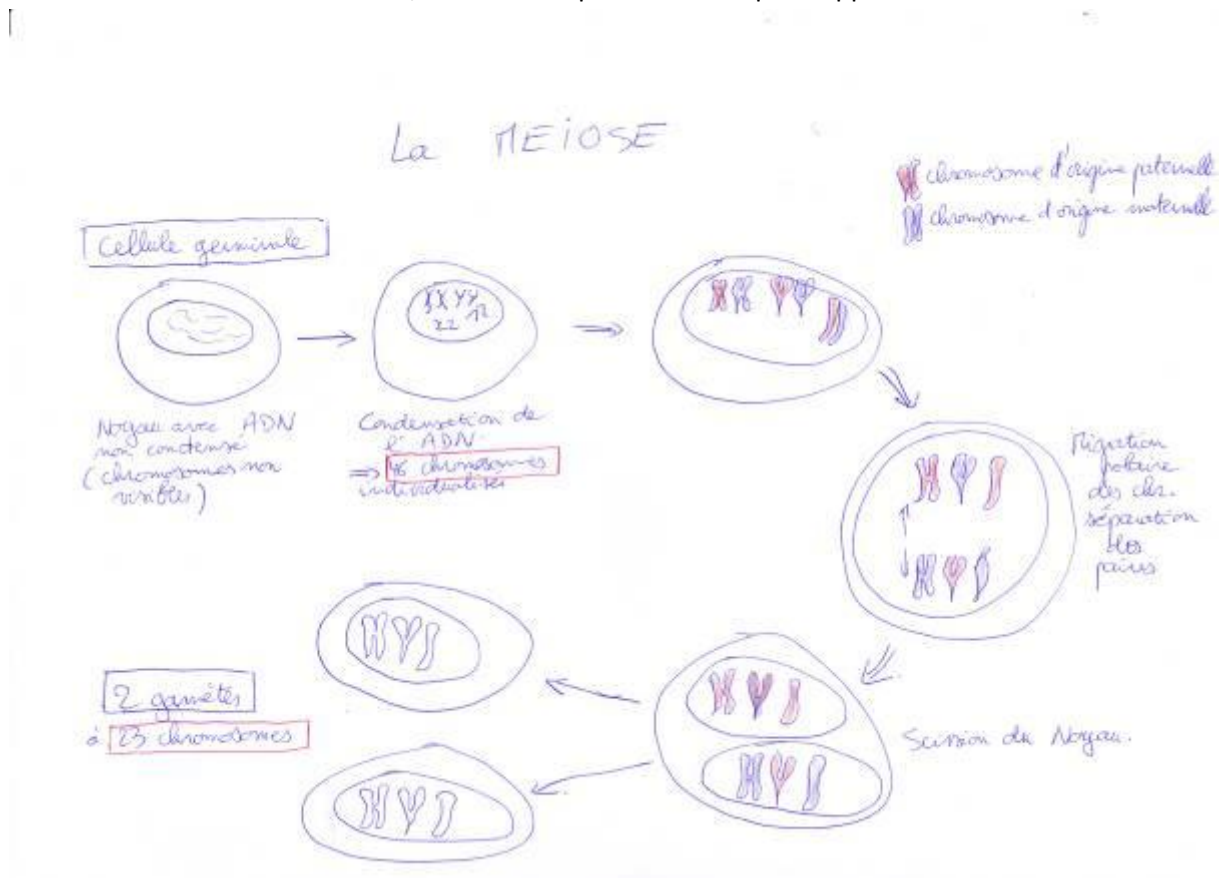 La MEIOSE
chromosome d'origine paternelle
chromosome d'origine maternelle
Cellule germinale
Noyau avec ADN
non condensé
(chromosomes non
visibles)
Condensation de
l'ADN
=> 46 chromosomes
individualisés
Migration
polaire
des chr.
séparation
des
paires
Scission du Noyau.
2 gamètes
à 23 chromosomes